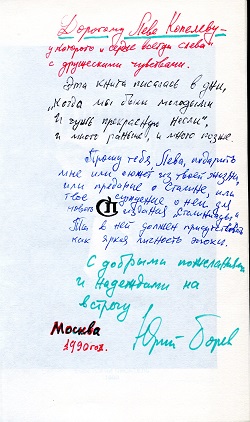 Дорогому Леве Копелеву –
у которого „сердце всегда слева"
с дружескими чувствами.
Эта книга писалась в дни,
„Когда мы были молодыми
И чушь прекрасную несли".
и много раньше, и много позже.
Прошу тебя, Лева, подарить
мне или сюжет из твоей жизни,
или предание о Сталине, или
твое суждение о нем для
нового издания „Сталиниады".
Ты в ней должен присутствовать
как яркая личность эпохи.
С добрыми пожеланиями
и надеждами на
встречу
Юрий Борев
Москва
1990 год.